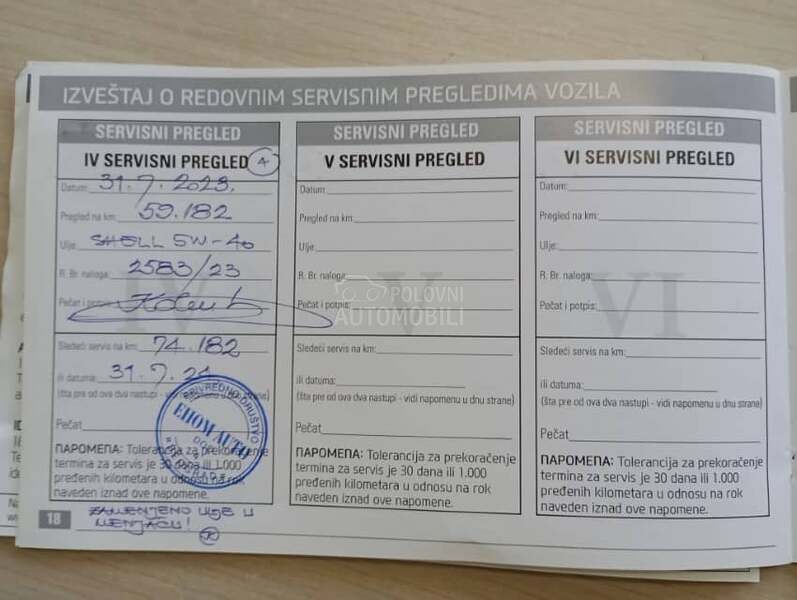 IZVEŠTAJ O REDOVNIM SERVISNIM PREGLEDIMA VOZILA
SERVISNI PREGLED
IV SERVISNI PREGLED 4
Datum: 31.7.2023.
Pregled na km: 59.182
Ulje: SHELL 5W-40
R. Br. naloga: 2583/23
Pečat i potpis:
IV
Sledeći servis na km: 74.182
ili datuma: 31.7.24
(šta pre od ova dva nastupi - vidi napomenu u dnu strane)
Pečat
PRIVREDNO DRUŠTVO
EHOM AUTO
DOO
BEOGRAD
NAPOMENA: Tolerancija za prekoračenje
termina za servis je 30 dana ili 1.000
pređenih kilometara u odnosu na rok
naveden iznad ove napomene.
ZAMENJENO ULJE U
MENJAČU!
18
SERVISNI PREGLED
V SERVISNI PREGLED
Datum:
Pregled na km:
Ulje:
R. Br. naloga:
Pečat i potpis:
V
POLOVNI
AUTOMOBILI
Sledeći servis na km:
ili datuma:
(šta pre od ova dva nastupi - vidi napomenu u dnu strane)
Pečat
NAPOMENA: Tolerancija za prekoračenje
termina za servis je 30 dana ili 1.000
pređenih kilometara u odnosu na rok
naveden iznad ove napomene.
SERVISNI PREGLED
VI SERVISNI PREGLED
Datum:
Pregled na km:
Ulje:
R. Br. naloga:
Pečat i potpis:
VI
Sledeći servis na km:
ili datuma:
(šta pre od ova dva nastupi - vidi napomenu u dnu strane)
Pečat
NAPOMENA: Tolerancija za prekoračenje
termina za servis je 30 dana ili 1.000
pređenih kilometara u odnosu na rok
naveden iznad ove napomene.